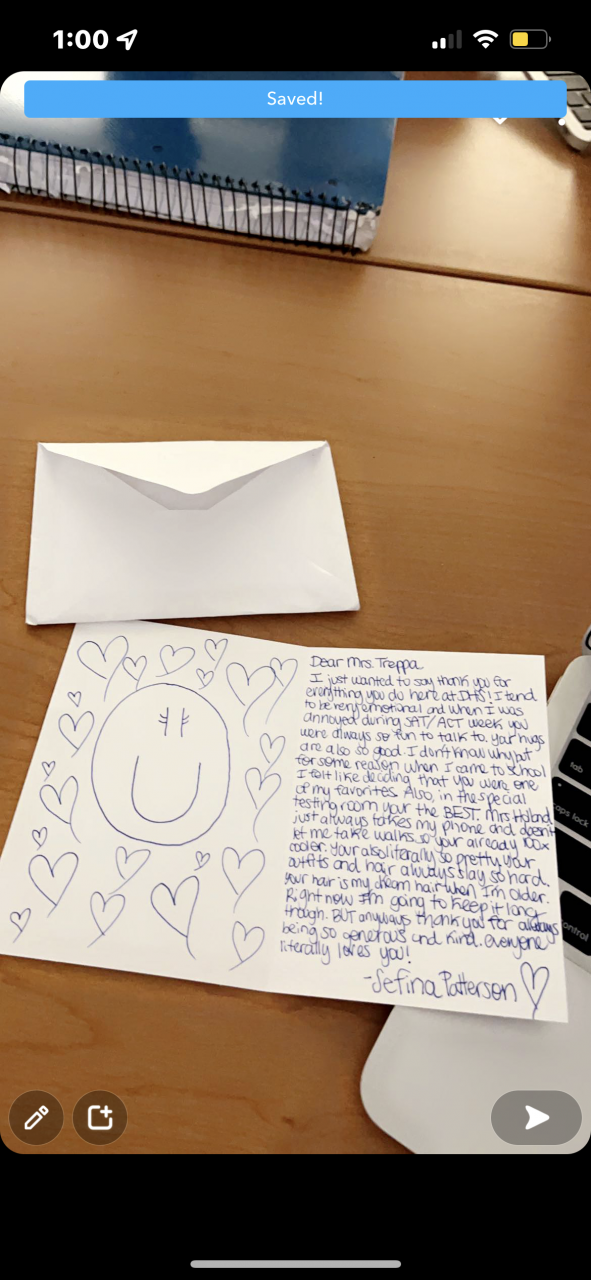 1:00
Saved!
Dear Mrs. Treppa
I just wanted to say thank you for
everything you do here at DHS! I tend
to be very emotional and when I was
annoyed during SAT/ACT week you
were always so fun to talk to. your hugs
are also so good. I don't know why but
for some reason when I came to school
I felt like deciding that you were one
of my favorites. Also, in the special
testing room your the BEST. Mrs Holland
just always takes my phone and doesn't
let me take walks so your already 100x
cooler. your also literally so pretty. your
outfits and hair always slay so hard.
your hair is my dream hair when I'm older.
Right now I'm going to keep it long
though. BUT anyways thank you for always
being so generous and kind. everyone
literally loves you!
-Sefina Patterson
tab
caps lock
control